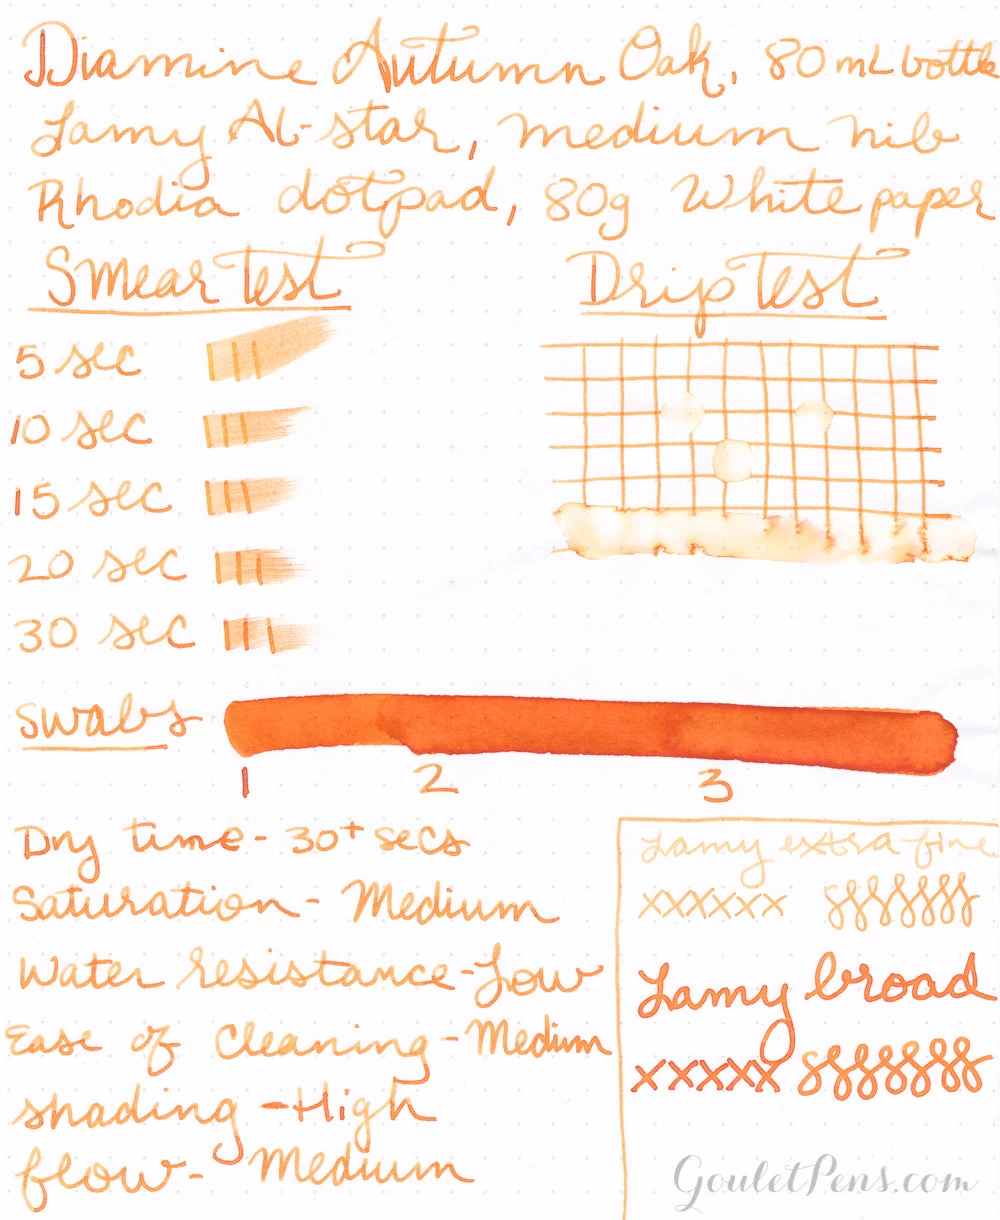 Diamine Autumn Oak, 80 mL bottle
Lamy Al-star, medium nib
Rhodia dotpad, 80g White paper
Smear Test
Drip Test
5 sec
10 sec
15 sec
20 sec
30 sec
Swabs
1 2 3
Dry time- 30+ secs
Saturation- Medium
Water resistance- Low
Ease of Cleaning- Medium
shading - High
flow- Medium
Lamy extra fine
xxxxxxx
Lamy broad
xxxxx
GouletPens.com